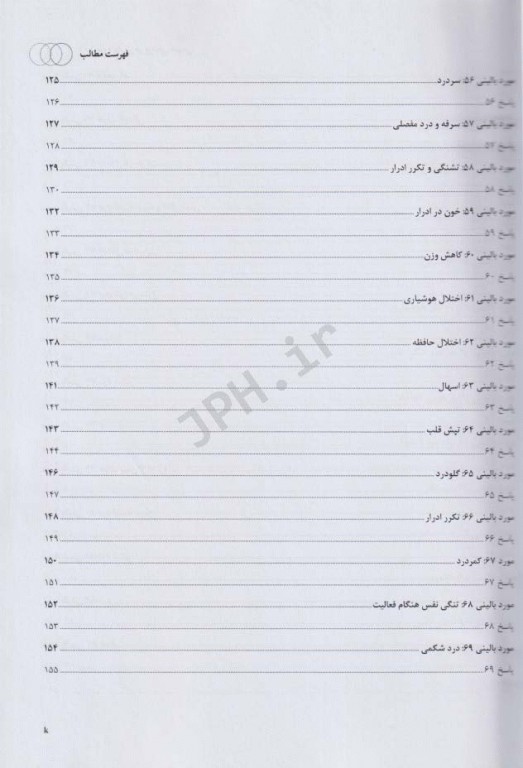 فهرست مطالب
مورد بالینی ۵۶: سردرد ۱۲۵
پاسخ ۵۶ ۱۲۶
مورد بالینی ۵۷: سرفه و درد مفصلی ۱۲۷
پاسخ ۵۷ ۱۲۸
مورد بالینی ۵۸: تشنگی و تکرر ادرار ۱۲۹
پاسخ ۵۸ ۱۳۰
مورد بالینی ۵۹: خون در ادرار ۱۳۲
پاسخ ۵۹ ۱۳۳
مورد بالینی ۶۰: کاهش وزن ۱۳۴
پاسخ ۶۰ ۱۳۵
مورد بالینی ۶۱: اختلال هوشیاری ۱۳۶
پاسخ ۶۱ ۱۳۷
مورد بالینی ۶۲: اختلال حافظه ۱۳۸
پاسخ ۶۲ ۱۳۹
مورد بالینی ۶۳: اسهال ۱۴۱
پاسخ ۶۳ ۱۴۲
مورد بالینی ۶۴: تپش قلب ۱۴۳
پاسخ ۶۴ ۱۴۴
مورد بالینی ۶۵: گلودرد ۱۴۶
پاسخ ۶۵ ۱۴۷
مورد بالینی ۶۶: تکرر ادرار ۱۴۸
پاسخ ۶۶ ۱۴۹
مورد ۶۷: کمردرد ۱۵۰
پاسخ ۶۷ ۱۵۱
مورد بالینی ۶۸: تنگی نفس هنگام فعالیت ۱۵۲
پاسخ ۶۸ ۱۵۳
مورد بالینی ۶۹: درد شکمی ۱۵۴
پاسخ ۶۹ ۱۵۵
k
JPH.ir